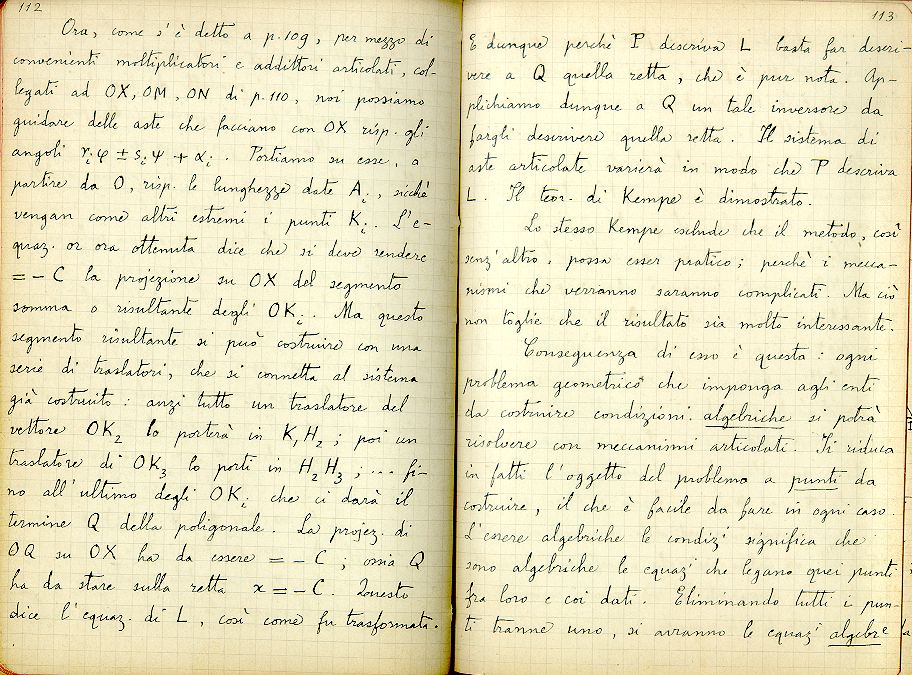 112
Ora, come s'è detto a p. 109, per mezzo di
convenienti moltiplicatori e addittori articolati, col-
legati ad OX, OM, ON di p. 110, noi possiamo
guidare delle aste che facciano con OX risp. gli
angoli rᵢφ ± sᵢψ + αᵢ. Portiamo su esse, a
partire da O, risp. le lunghezze date Aᵢ, sicchè
vengan come altri estremi i punti Kᵢ. L'e-
quaz. or ora ottenuta dice che si deve rendere
= - C la projezione su OX del segmento
somma o risultante degli OKᵢ. Ma questo
segmento risultante si può costruire con una
serie di traslatori, che si connetta al sistema
già costruito: anzi tutto un traslatore del
vettore OK₂ lo porterà in K₁H₂; poi un
traslatore di OK₃ lo porti in H₂H₃; ... fi-
no all'ultimo degli OKᵢ che ci darà il
termine Q della poligonale. La projez. di
OQ su OX ha da essere = - C; ossia Q
ha da stare sulla retta x = - C. Questo
dice l'equaz. di L, così come fu trasformata.
113
E dunque perchè P descriva L basta far descri-
vere a Q quella retta, che è pur nota. Ap-
plichiamo dunque a Q un tale inversore da
fargli descrivere quella retta. Il sistema di
aste articolate varierà in modo che P descriva
L. Il teor. di Kempe è dimostrato.
Lo stesso Kempe esclude che il metodo, così
senz'altro, possa esser pratico; perchè i mecca-
nismi che verranno saranno complicati. Ma ciò
non toglie che il risultato sia molto interessante.
Conseguenza di esso è questa: ogni
problema geometrico che imponga agli enti
da costruire condizioni algebriche si potrà
risolvere con meccanismi articolati. Si riduca
in fatti l'oggetto del problema a punti da
costruire, il che è facile da fare in ogni caso.
L'essere algebriche le condizⁱ significa che
sono algebriche le equazⁱ che legano quei punti
fra loro e coi dati. Eliminando tutti i pun-
ti tranne uno, si avranno le equazⁱ algebrᵉ